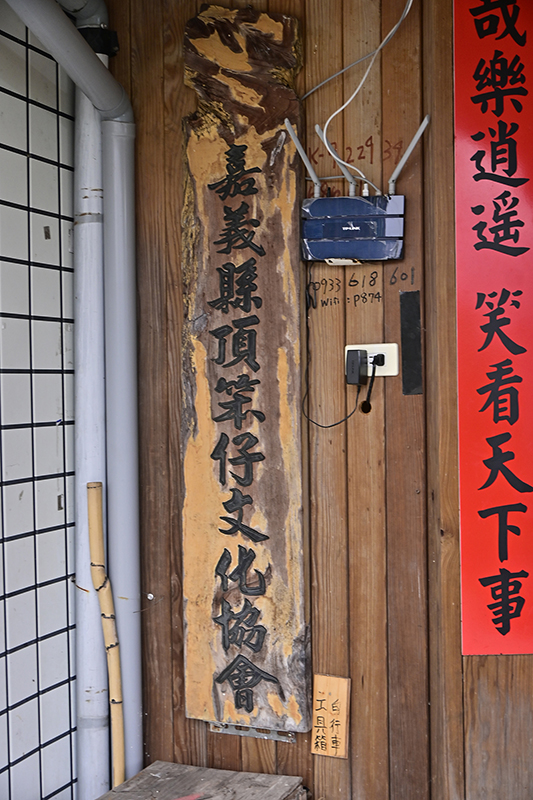 嘉義縣頂笨仔文化協會
TP-LINK
0933 618 601
Wifi: P874
自行車
工具箱
哉樂逍遙 笑看天下事